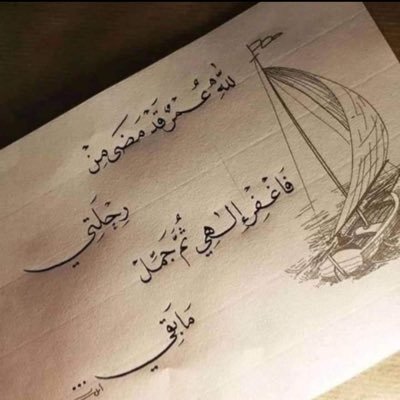 لِلّٰهِ عُمْرٌ قَدْ مَضَى مِنْ
رِحْلَتِي
فَاغْفِرْ إِلٰهِي ثُمَّ جَمِّلْ
مَا بَقِي